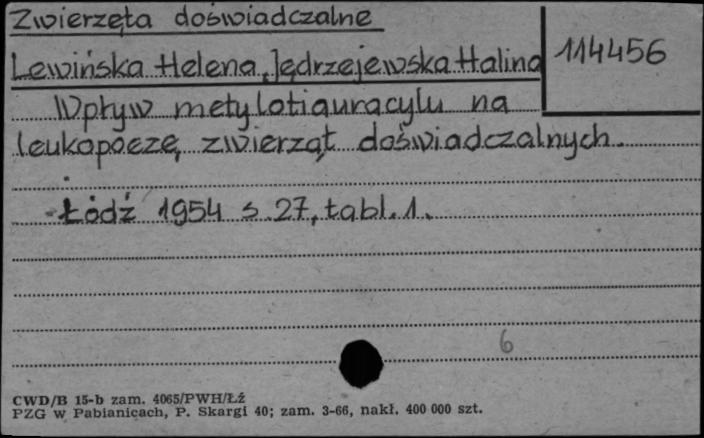 Zwierzęta doświadczalne
114456
Lewińska Helena, Jędrzejewska Halina
Wpływ metylotiouracylu na
leukopoezę zwierząt doświadczalnych.
Łódź 1954 s. 27, tabl. 1.
6
CWD/B 15-b zam. 4065/PWH/ŁŹ
PZG w Pabianicach, P. Skargi 40; zam. 3-66, nakł. 400 000 szt.